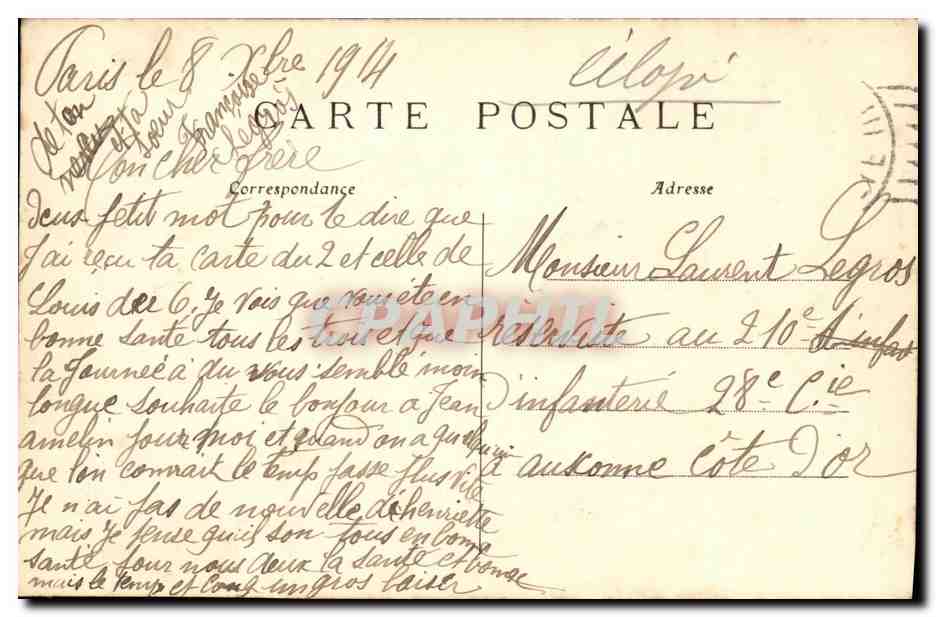 Paris le 8 Xbre 1914
CARTE POSTALE
de ton
neveux
et ta
soeur
Françoise
Legros
Mon cher frère
Correspondance
Deux petit mot pour te dire que
J'ai reçu ta carte du 2 et celle de
Louis du 6. Je vois que vous ete en
bonne santé tous les trois et que
la Journée à du vous semblé moin
longue souhaite le bonjour a Jean
amelin pour moi et quand on a quelqu'un
que l'on connait le temp passe plus vite
Je n'ai pas de nouvelle de henriette
mais Je pense qu'il son tous en bonne
santé pour nous deux la santé et bonne
mais le temp et long un gros baiser
Adresse
Monsieur Laurent Legros
réserviste au 210e d'infant
d'infanterie 28e Cie
à auxonne côte D'or
CPAPHIL